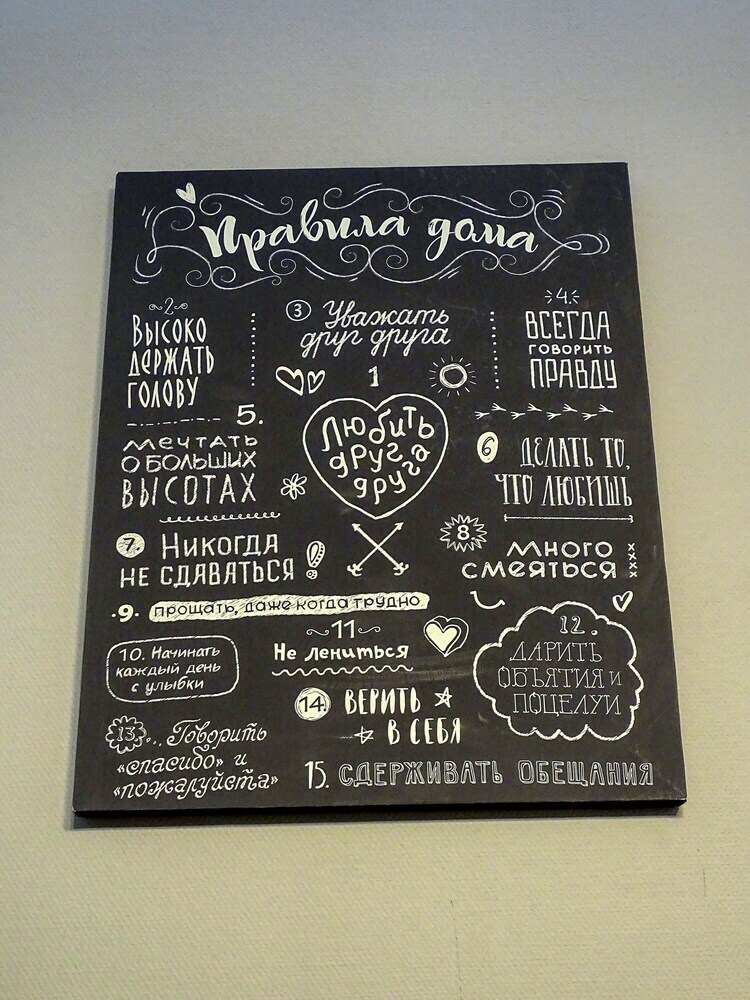 Правила дома
2
Высоко
держать
голову
3 Уважать
друг друга
4.
ВСЕГДА
ГОВОРИТЬ
ПРАВДУ
1
Любить
друг
друга
5.
мечтать
о больших
высотах
6 ДЕЛАТЬ ТО,
ЧТО ЛЮБИШЬ
7. Никогда
не сдаваться
8. много
смеяться
9. прощать, даже когда трудно
10. Начинать
каждый день
с улыбки
11
Не лениться
12.
ДАРИТЬ
ОБЪЯТИЯ И
ПОЦЕЛУИ
13... Говорить
«спасибо» и
«пожалуйста»
14. ВЕРИТЬ
В СЕБЯ
15. СДЕРЖИВАТЬ ОБЕЩАНИЯ